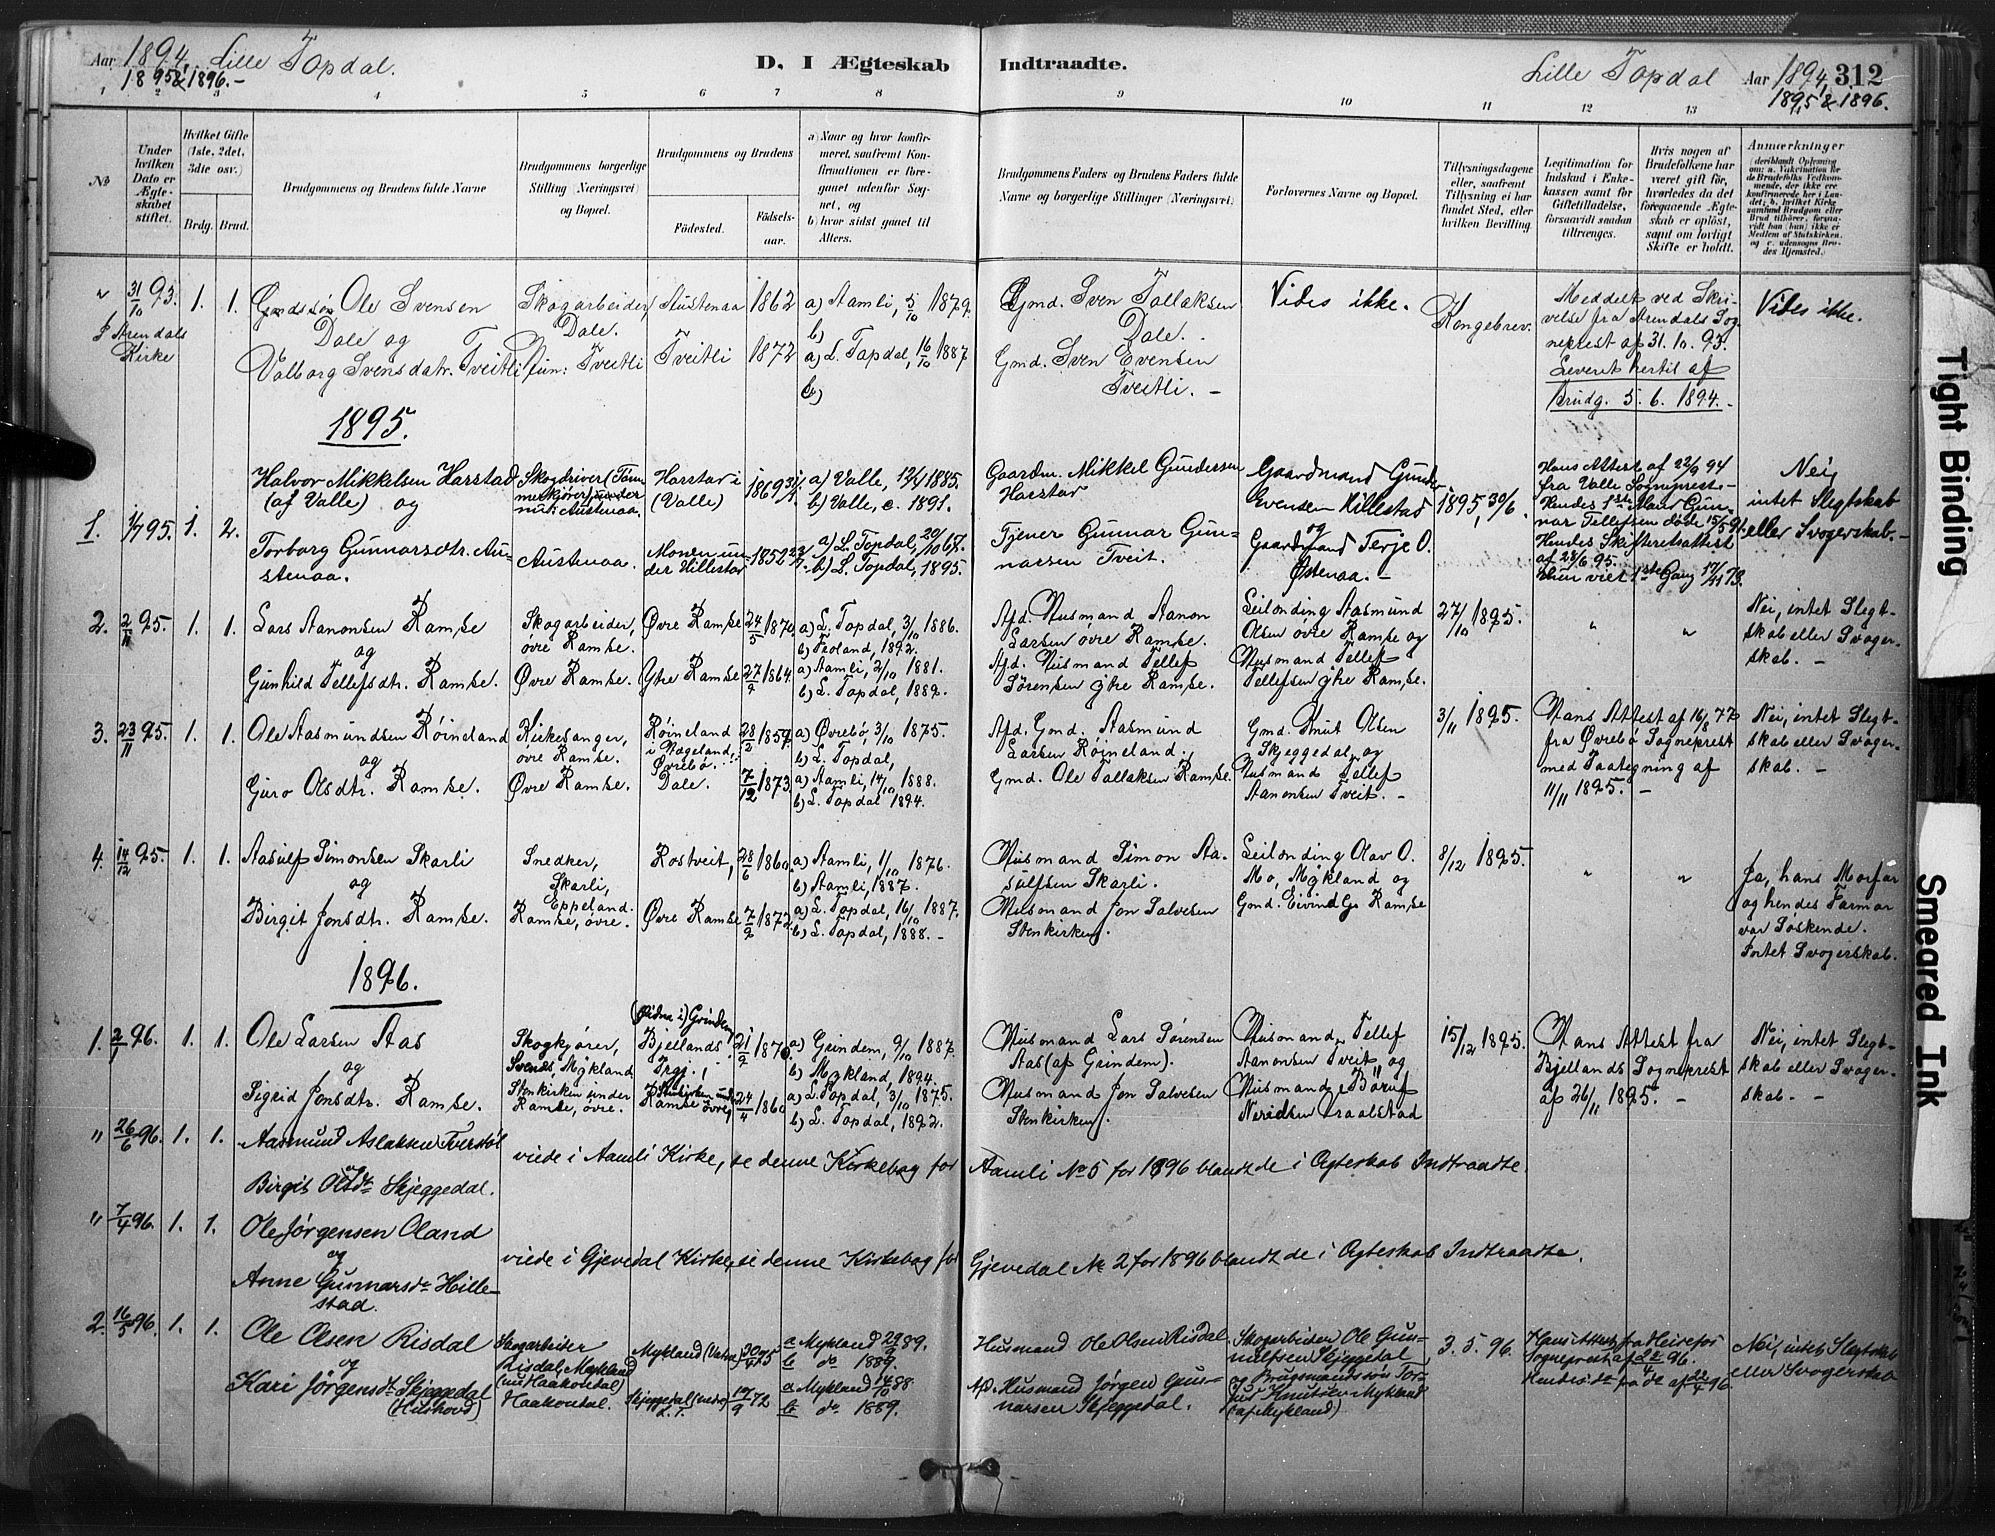 Aar 1894, Lille Topdal.
1895 & 1896.-
D. I Ægteskab Indtraadte.
Lille Topdal Aar 1894, 312
1895 & 1896.
1 2 3 4 5 6 7 8 9 10 11 12 13
No
Under hvilken Dato er Ægteskabet stiftet.
Hvilket Gifte (1ste, 2det, 3die osv.)
Brdg. Brud.
Brudgommens og Brudens fulde Navne
Brudgommens borgerlige Stilling (Næringsvei) og Bopæl.
Brudgommens og Brudens
Fødested. Fødselsaar.
a) Naar og hvor konfirmeret, saafremt Konfirmationen er foregaaet udenfor Sognet, og
b) hvor sidst gaaet til Alters.
Brudgommens Faders og Brudens Faders fulde Navne og borgerlige Stillinger (Næringsvei)
Forlovernes Navne og Bopæl.
Tillysningsdagene eller, saafremt Tillysning ei har fundet Sted, efter hvilken Bevilling.
Legitimation for Indskud i Enkekassen samt for Giftetilladelse, forsaavidt saadan tiltrænges.
Hvis nogen af Brudefolkene har været gift før, hvorledes da det foregaaende Ægteskab er opløst, samt om lovligt Skifte er holdt.
Anmærkninger
" 31/10 93. 1. 1.
I Arendals Kirke
Gmdssøn Ole Svensen
Dale og
Valborg Svensdatr. Tveitli
Skogarbeider,
Dale.
fun: Tveitli
Austenaa 1862
Tveitli 1872
a) Aamli, 5/10 1879.
b)
a) L. Topdal, 16/10 1887
b)
Gmd. Sven Tallaksen
Dale.
Gmd. Sven Evensen
Tveitli. -
Vides ikke.
Kongebrev.
Meddelt ved Skri-
velse fra Arendals Sog-
neprest af 31. 10. 93.
Leveret hertil af
Brudg. 5. 6. 1894. -
Vides ikke.
1895.
1. 1/7 95. 1. 2.
Halvor Mikkelsen Harstad
(af Valle) og
Torborg Gunnarsdtr. Au-
stenaa.
Skogdriver (Tøm-
merkjører) under
nu: Austenaa.
Austenaa.
Harstar i
(Valle)
Monen un-
der Hillestar
1869
1852
a) Valle, 12/7 1885.
b) Valle, c. 1891.
a) L. Topdal, 20/10 67.
b) L. Topdal, 1895.
Gaardm. Mikkel Gundersen
Harstar
Tjener Gunnar Gun-
narsen Tveit.
Gaardmand Gunder
Evensen Hillestad
og
Gaardmand Terje O.
Østenaa. -
1895, 30/6.
Hans Attest af 22/9 94
fra Valle Sogneprest-
Hendes 1ste Mand Gun-
nar Tellefsen døde 15/5 91.
Hendes Skifteretsattest
af 28/6 95.
Hun viet 1ste Gang 17/11 73.
Nei,
intet Slegtskab
eller Svogerskab. -
2. 2/11 95. 1. 1.
Lars Aanonsen Ramse
og
Gunhild Tellefsdtr. Ramse.
Skogarbeider,
øvre Ramse.
Øvre Ramse.
Øvre Ramse 24/5 1870
Ytre Ramse 27/9 1864
a) L. Topdal, 3/10 1886.
b) Froland, 1892.
a) Aamli, 2/10 1881.
b) L. Topdal, 1889.
Afd. Husmand Aanon
Larsen øvre Ramse.
Afd. Husmand Tellef
Sørensen ytre Ramse.
Leilending Aasmund
Olsen øvre Ramse og
Husmand Tellef
Tellefsen ytre Ramse.
27/10 1895.
" "
Nei, intet Slegt-
skab eller Svoger-
skab. -
3. 23/11 95. 1. 1.
Ole Aasmundsen Røineland
og
Guro Olsdtr. Ramse.
Kirkesanger,
øvre Ramse.
Øvre Ramse.
Røineland
i Vegeland,
Øvrebø.
Dale.
28/2 1859.
7/12 1873.
a) Øvrebø, 3/10 1875.
b) L. Topdal,
a) Aamli, 14/10 1888.
b) L. Topdal 1894.
Afd. Gmd. Aasmund
Larsen Røineland.
Gmd. Ole Tallaksen Ramse.
Gmd. Knut Olsen
Skjeggedal, og
Husmand Tellef
Aanonsen Tveit. -
3/11 1895.
Hans Attest af 16/8 77
fra Øvrebø Sogneprest
med Paategning af
11/11 1895. -
Nei, intet Slegt-
skab eller Svoger-
skab. -
4. 14/12 95. 1. 1.
Aasulf Simonsen Skarli
og
Birgit Jonsdtr. Ramse.
Snedker,
Skarli,
Eppeland.
Ramse, øvre.
Rostveit, 28/6 1860.
Øvre Ramse 7/9 1872.
a) Aamli, 1/10 1876.
b) Aamli, 1887.
a) L. Topdal, 16/10 1887.
b) L. Topdal, 1888. -
Husmand Simon Aa-
sulfsen Skarli.
Husmand Jon Salvesen
Stenkirken.
Leilending Olav O.
Mo, Mykland og
Gmd. Eivind Gs Ramse
8/12 1895.
" "
Ja, hans Morfar
og hendes Farmor
var Søskende.
Intet Svogerskab.
1896.
1. 2/1 96. 1. 1.
Ole Larsen Aas
og
Sigrid Jonsdtr. Ramse.
Skogkjører,
Svends, Mykland
Stenkirken under
Ramse, øvre.
Grindem,
Bjellands
Prgj.
Stenkirken under
Ramse øvre,
21/9 1870.
24/4 1860
a) Grindem, 9/10 1887.
b) Mykland, 1894.
a) L. Topdal, 3/10 1875.
b) L. Topdal, 1892.
Husmand Lars Sørensen
Aas (af Grindem).
Husmand Jon Salvesen
Stenkirken.
Husmand Tellef
Aanonsen Tveit og
Husmand
Neridsen Traalstad
15/12 1895.
Hans Attest fra
Bjellands Sogneprest
af 26/11 1895. -
Nei, intet Slegt-
skab eller Svoger-
skab. -
" 26/6 96. 1. 1.
Aasmund Aslaksen Tverstøl
og
Birgit Olsdtr Skjeggedal.
viede i Aamli Kirke, se denne Kirkebog for Aamli No 5 for 1896 blandt de i Ægteskab Indtraadte.
" 7/4 96. 1. 1.
Ole Jørgensen Oland
og
Anne Gunnarsdr Hille-
stad.
viede i Gjevedal Kirke, se denne Kirkebog for Gjevedal No 2 for 1896 blandt de i Ægteskab Indtraadte.
2. 16/5 96. 1. 1.
Ole Olsen Risdal
og
Kari Jørgensdr Skjeggedal
Skogarbeider
Risdal, Mykland
(nu Haakondal)
Haakondal.
Mykland 30/4 75
Skjeggedal
L. T.
19/9 72
a Mykland 29/9 89.
b do 1889.
a Mykland 14/10 88
b do 1889.
Husmand Ole Olsen Risdal
Afd. Husmand Jørgen Gun-
narsen Skjeggedal.
Skogarbeider Ole Gun-
nulfsen Skjeggedal
og Brugsmandssøn Tor-
jus Knutsen Mykland
(af Mykland)
3. 5. 96.
Hans Attest fra Herefos
Sogneprest af 22/4 96.
Hendes do fra do af 22/4 96.
Nei, intet Slegtskab
eller Svogerskab
Tight Binding
Smeared Ink